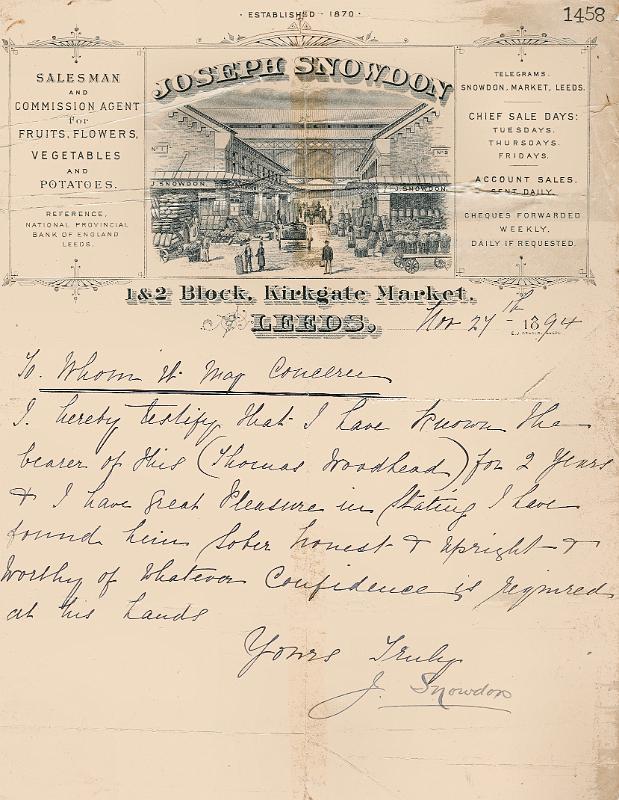 · ESTABLISHED · 1870 ·
1458
SALESMAN
AND
COMMISSION AGENT
For
FRUITS, FLOWERS,
VEGETABLES
AND
POTATOES.
REFERENCE,
NATIONAL PROVINCIAL
BANK OF ENGLAND
LEEDS.
JOSEPH SNOWDON
No 1
No 2
J. SNOWDON.
J. SNOWDON.
TELEGRAMS.
SNOWDON, MARKET, LEEDS.
CHIEF SALE DAYS:
TUESDAYS.
THURSDAYS.
FRIDAYS.
ACCOUNT SALES.
SENT DAILY.
CHEQUES FORWARDED
WEEKLY,
DAILY IF REQUESTED.
1 & 2 Block, Kirkgate Market,
LEEDS,
Nov 27th 1894
To Whom it May Concern
I hereby testify that I have known the
bearer of this (Thomas Woodhead) for 2 Years
& I have great Pleasure in Stating I have
found him Sober honest & upright &
Worthy of Whatever Confidence is required
at his hands
Yours Truly
J. Snowdon